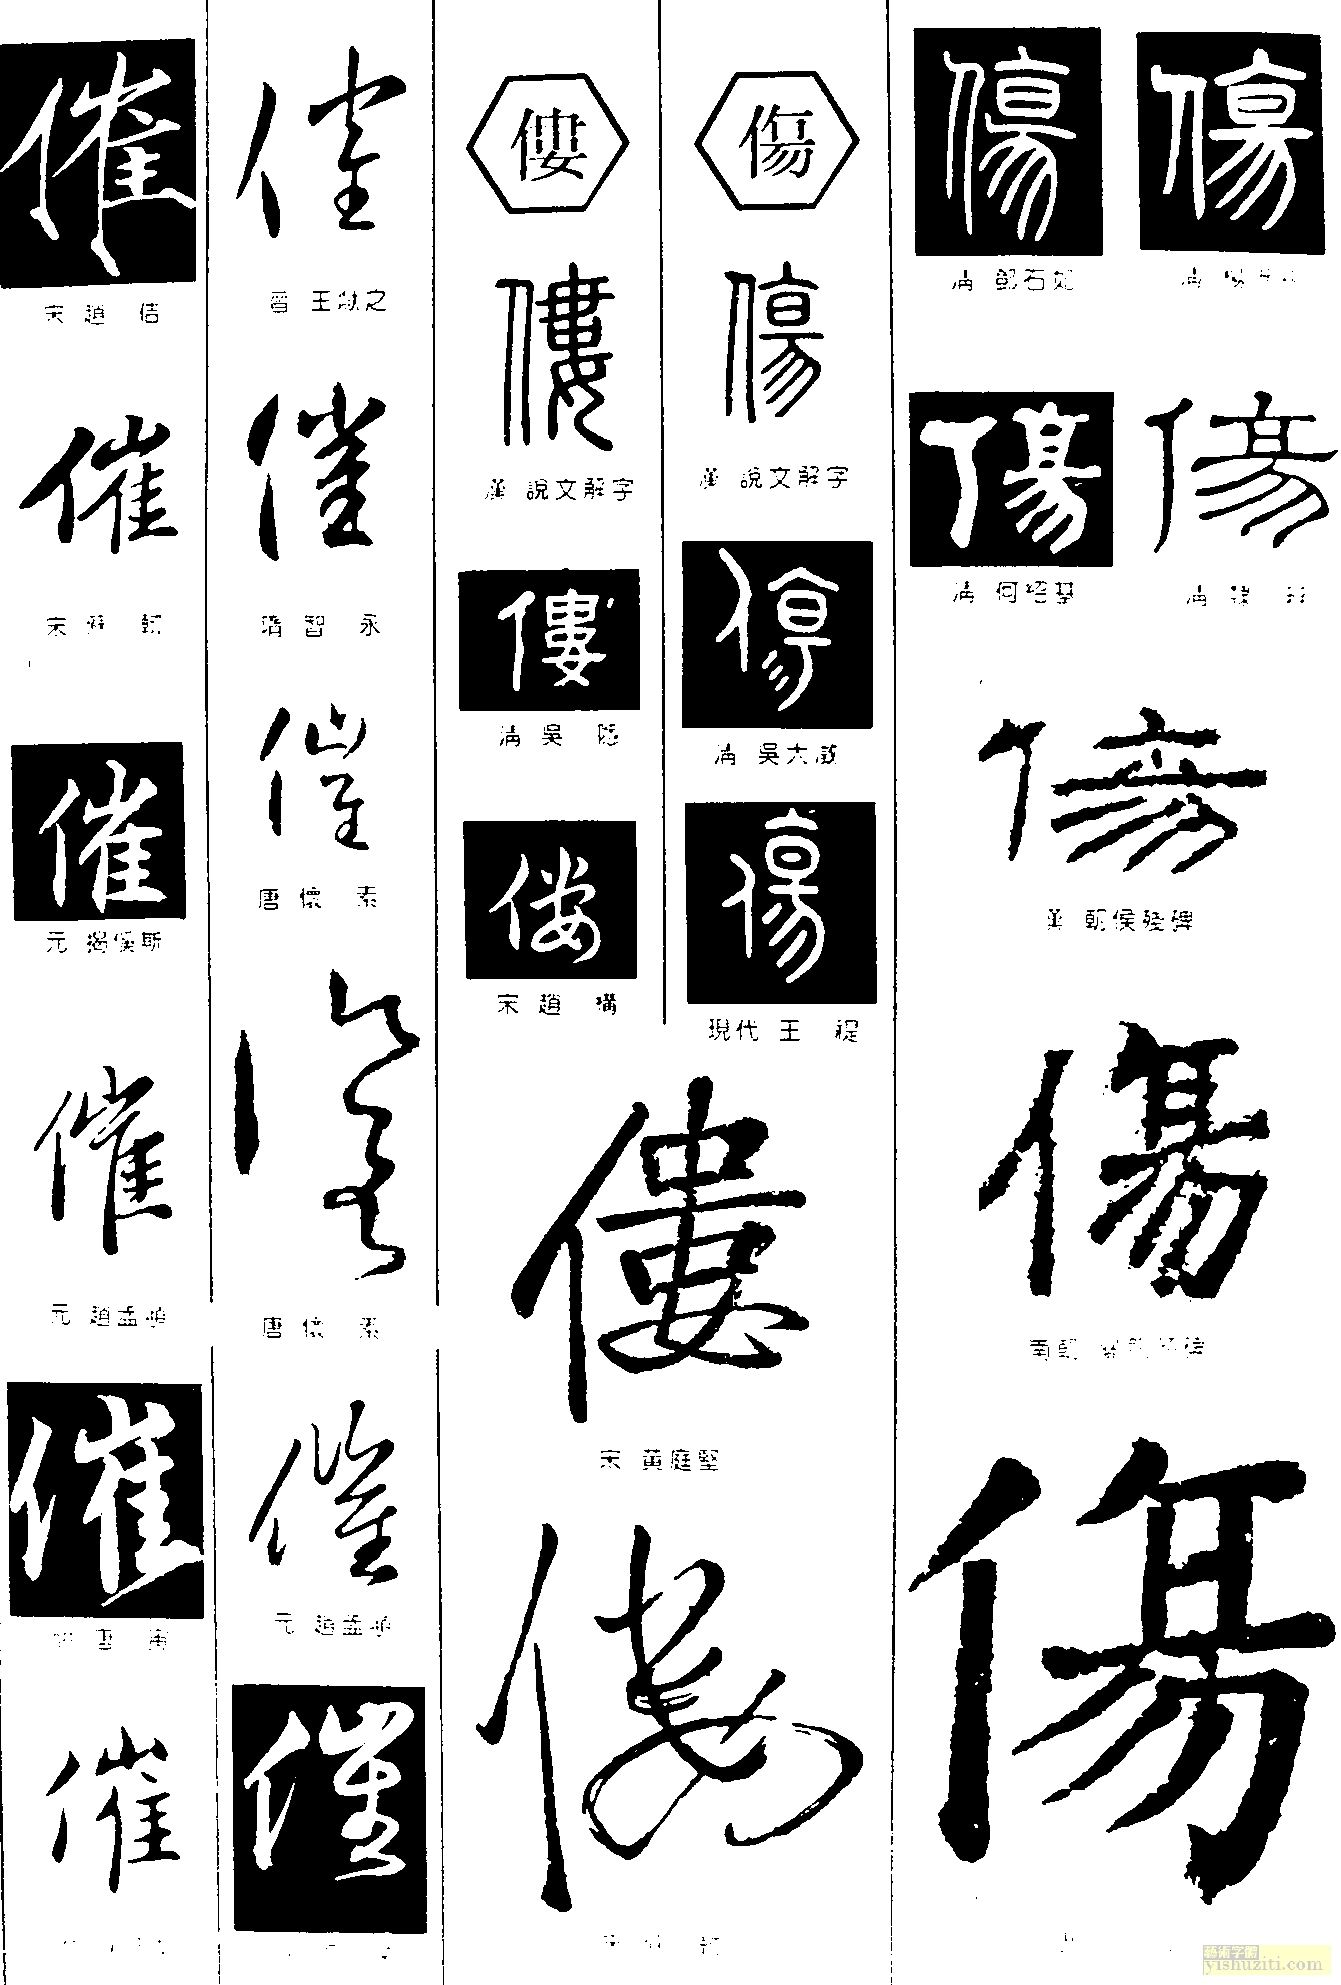 催
宋 趙 佶
催
宋
催
元 揭傒斯
催
元 趙孟頫
催
唐寅
催
催
晉 王獻之
催
隋 智 永
催
唐 懷 素
催
唐 懷 素
催
元 趙孟頫
催
僂
僂
漢 說文解字
僂
清 吳 隱
僂
宋 趙 構
僂
宋 黃庭堅
僂
傷
傷
漢 說文解字
傷
清 吳大澂
傷
現代 王 禔
傷
清 鄧石如
傷
清
傷
清 何紹基
傷
清
傷
漢 朝侯殘碑
傷
傷
藝術字體
yishuziti.com